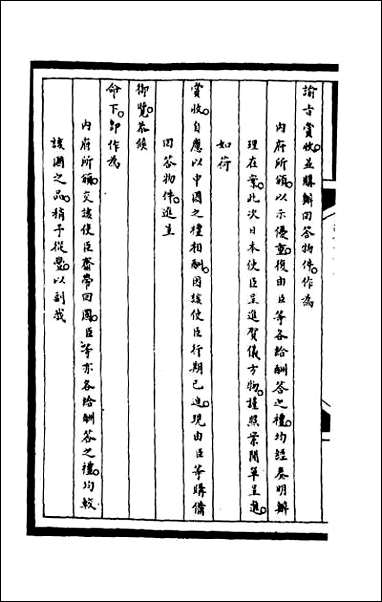 諭旨賞收並購辦回答物件作為
內府所頒以示優重復由臣等各給酬答之禮均經奏明辦
理在案此次日本使臣呈進賀儀方物謹照案開單呈進
如荷
賞收自應以中國之禮相酬因該使臣行期已迫現由臣等購備
回答物件進呈
御覽恭候
命下即作為
內府所頒交該使臣齎帶回國臣等亦各給酬答之禮均較
該國之品稍予從豐以副我